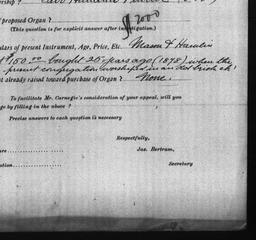 f proposed Organ?
$2000
(This question is for explicit answer after investigation.)
ulars of present Instrument, Age, Price, Etc. Mason & Hamlin
$150.00 bought 25 years ago (1878) when the
present congregation worshiped in an old brick ch.
t already raised toward purchase of Organ? None.
To facilitate Mr. Carnegie's consideration of your appeal, will you
ge by filling in the above?
Precise answers to each question is necessary
Respectfully,
Jas. Bertram,
Secretary